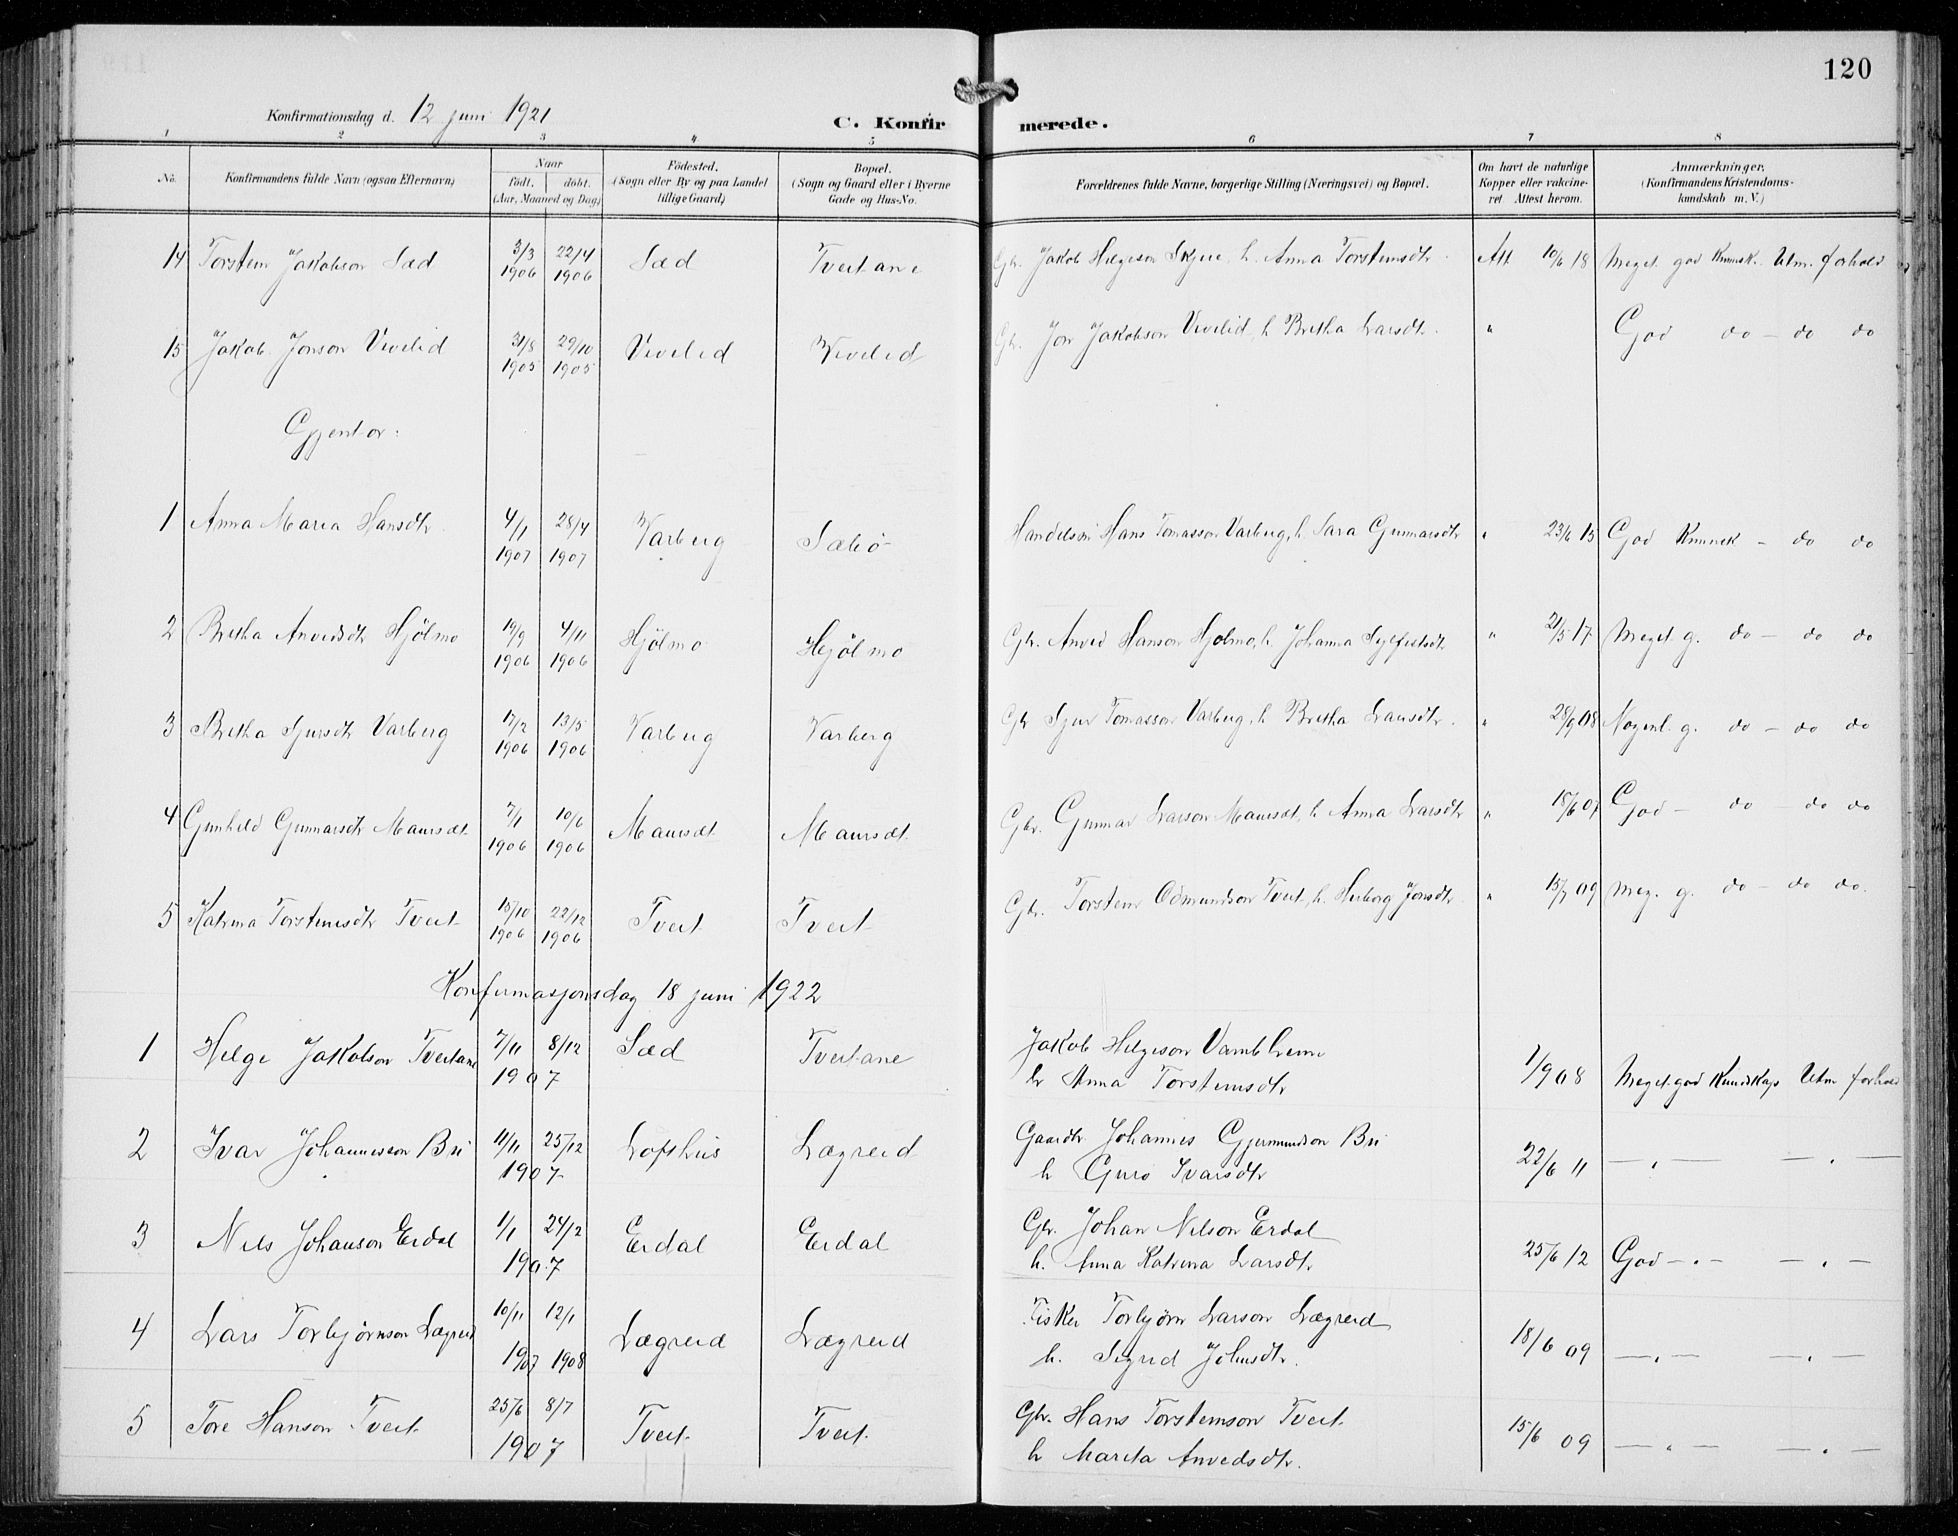 120
Konfirmationsdag d. 12 juni 1921
C. Konfirmerede.
1 2 3 4 5 6 7 8
No. Konfirmandens fulde Navn (ogsaa Efternavn) Naar födt. döbt. (Aar, Maaned og Dag.) Födested. (Sogn eller By og paa Landet tillige Gaard.) Bopæl. (Sogn og Gaard eller i Byerne Gade og Hus-No. Forældrenes fulde Navne, borgerlige Stilling (Næringsvei) og Bopæl. Om havt de naturlige Kopper eller vakcineret Attest herom. Anmærkninger. (Konfirmandens Kristendomskundskab m. V.)
14 Torstein Jakobson Sæd 3/3 1906 22/4 1906 Sæd Tveitane Gbr. Jakob Helgeson Skjere, h. Anna Torsteinsdtr. Att 10/6 18 Meget god Kunnsk. Utm. forhold
15 Jakob Jonson Vivelid 31/8 1905 29/10 1905 Vivelid Vivelid Gbr. Jon Jakobson Vivelid, h Britha Larsdt. " God do - do do
Gjentor:
1 Anna Maria Hansdtr. 4/1 1907 28/4 1907 Varberg Sæbø Handelsm Hans Tomasson Varberg, h. Sara Gunnarsdtr " 23/6 15 God Kunnsk - do do
2 Britha Anvedsdtr Hjölmo 19/9 1906 4/11 1906 Hjölmo Hjölmo Gbr. Anved Hanson Hjolmo, h. Johanna Sylfestsdtr " 21/5 17 Meget g. do - do do
3 Britha Sjursdtr Varberg 17/2 1906 13/5 1906 Varberg Varberg Gbr Sjur Tomasson Varberg, h Britha Larsdtr. " 28/9 08 Nogenl. g. do - do do
4 Gunhild Gunnarsdtr Maursdt. 7/1 1906 10/6 1906 Maursdt Maursdt. Gbr. Gunnar Larson Maursdt, h. Anna Larsdtr " 18/6 07 God - do - do do
5 Katrina Torsteinsdtr Tveit 15/10 1906 22/12 1906 Tveit Tveit Gbr. Torstein Odmundson Tveit, h. Herborg Jonsdtr " 15/7 09 Meg. g. do - do do.
Konfirmasjonsdag 18 juni 1922
1 Helge Jakobson Tveitane 7/11 8/12 1907 Sæd Tveitane Jakob Helgeson Vambheim
h Anna Torsteinsdtr 1/9 08 Meget god Kundskap Utm forhold
2 Ivar Johannesson Bu 11/11 25/12 1907 Lofthus Lægreid Gaardbr. Johannes Gjermundson Bu
h Guro Ivarsdtr 22/6 11 — " — — " —
3 Nils Johanson Erdal 1/1 24/2 1907 Erdal Erdal Gbr. Johan Nilson Erdal
h. Anna Katrina Larsdtr 25/6 12 God — " — — " —
4 Lars Torbjørnson Lægreid 10/11 1907 12/1 1908 Lægreid Lægreid Fisker Torbjørn Larson Lægreid
h. Sigrid Johnsdtr. 18/6 09 — " — — " —
5 Tore Hanson Tveit 25/6 8/7 1907 Tveit Tveit. Gbr. Hans Torsteinson Tveit
h Marita Anvedsdtr. 15/6 09 — " — — " —